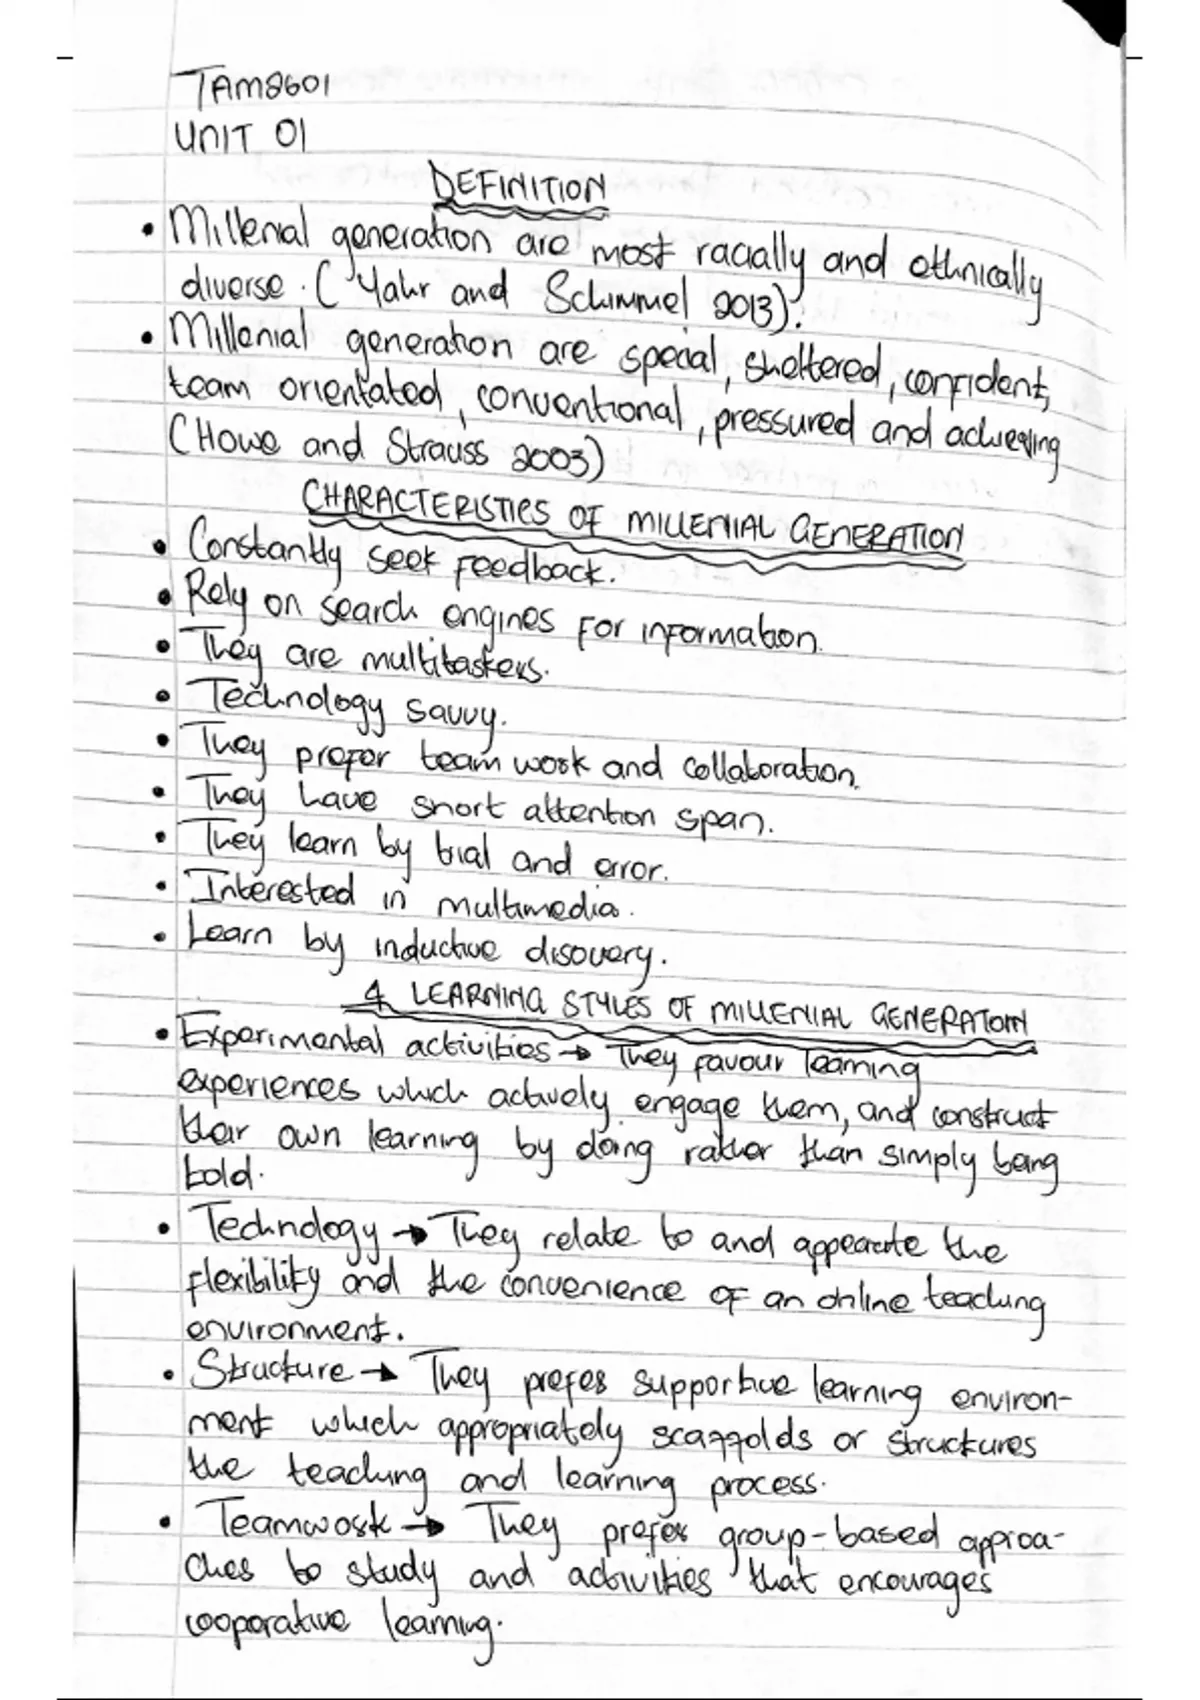 TAM8601
UNIT 01
DEFINITION
• Millenial generation are most racially and ethnically
diverse. (Yahr and Schimmel 2013).
• Millenial generation are special, sheltered, confident,
team orientated, conventional, pressured and achieving
(Howe and Strauss 2003)
CHARACTERISTICS OF MILLENIAL GENERATION
• Constantly seek feedback.
• Rely on search engines for information.
• They are multitaskers.
• Technology savvy.
• They prefer team work and collaboration.
• They have short attention span.
• They learn by trial and error.
• Interested in multimedia.
• Learn by inductive disovery.
4 LEARNING STYLES OF MILLENIAL GENERATION
• Experimental activities → They favour learning
experiences which actively engage them, and construct
their own learning by doing rather than simply being
told.
• Technology → They relate to and appeacate the
flexibility and the convenience of an online teaching
environment.
• Structure → They prefer supportive learning environ-
ment which appropriately scaffolds or structures
the teaching and learning process.
• Teamwork → They prefer group-based approa-
ches to study and activities that encourages
cooperative learning.